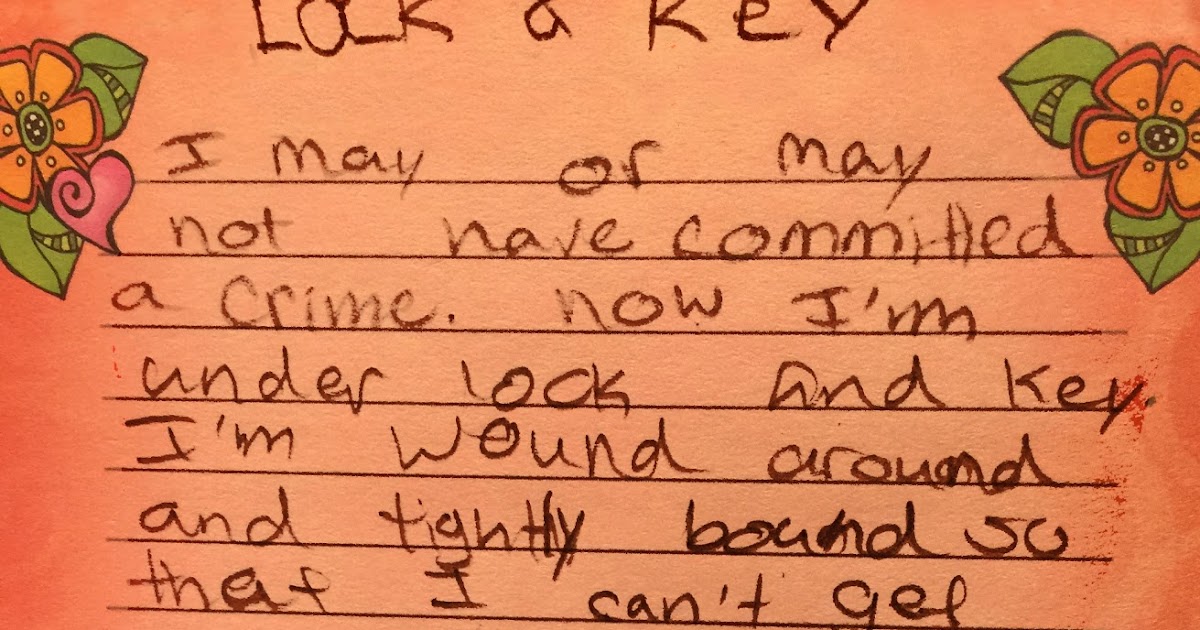 Lock a Key
I may or may
not have committed
a crime. now I'm
under lock and key.
I'm wound around
and tightly bound so
that I can't get